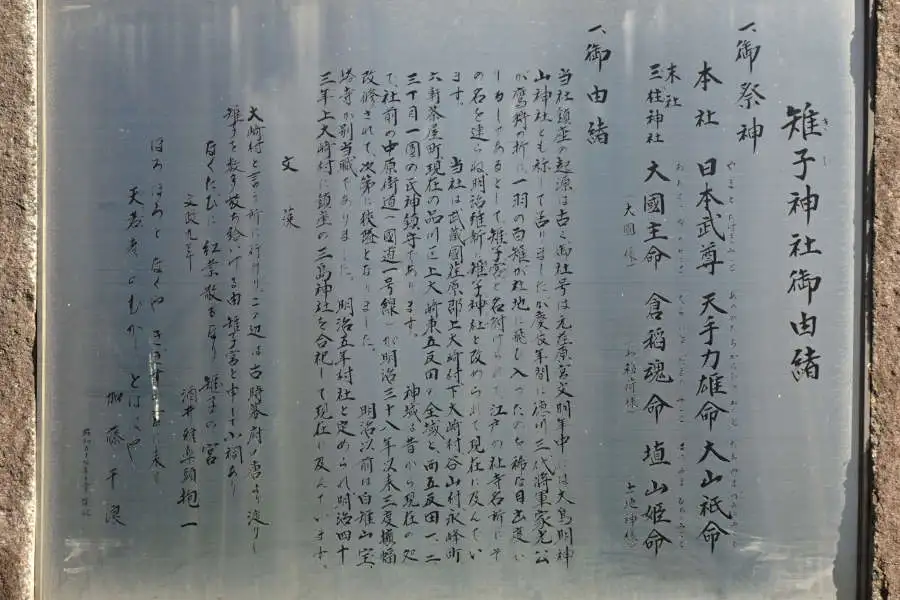 雉子神社御由緒
き し
一、御祭神
本社 日本武尊 天手力雄命 大山祇命
末社
三柱神社 大國主命 倉稲魂命 埴山姫命
大國様 お稲荷様 土地神様
一、御由緒
当社鎮座の起源は古く御社号は元荏原宮文明年中には大鳥明神
山神社とも称して居りましたが慶長年間に徳川三代将軍家光公
が鷹狩の折に一羽の白雉が社地に飛び入ったのを 目出度い
しるしであるとして雉子宮と名付けられて江戸の社寺名所にそ
の名を連らね明治維新 雉子神社と改められて現在に及んでい
ます。 当社は武蔵國荏原郡上大崎村下大崎村谷山村永峰町
六軒茶屋町現在の品川区上大崎東五反田の全域と、西五反田一、二
三丁目一圓の氏神鎮守であります。 神域は昔から現在の処
で、社前の中原街道（國道一号線）が明治三十八年以来三度擴幅
改修されて、次第に狭隘となりました。 明治以前は白雉山宝
塔寺が別当職でありました。 明治五年村社と定められ明治四十
三年上大崎村に鎮座の三島神社を合祀して現在に及んでいます。
文藻
大崎村と言う所に行けり この辺は古 時 唐より渡りし
雉子を数多放ち給いける由雉子宮と申して小祠あり
なくたびに 紅葉散るなり 雉子の宮
文政九年 酒井雅楽頭抱一
ほろほろと なくや きゞす に来し
天 も むかし とはゞや
加藤千浪